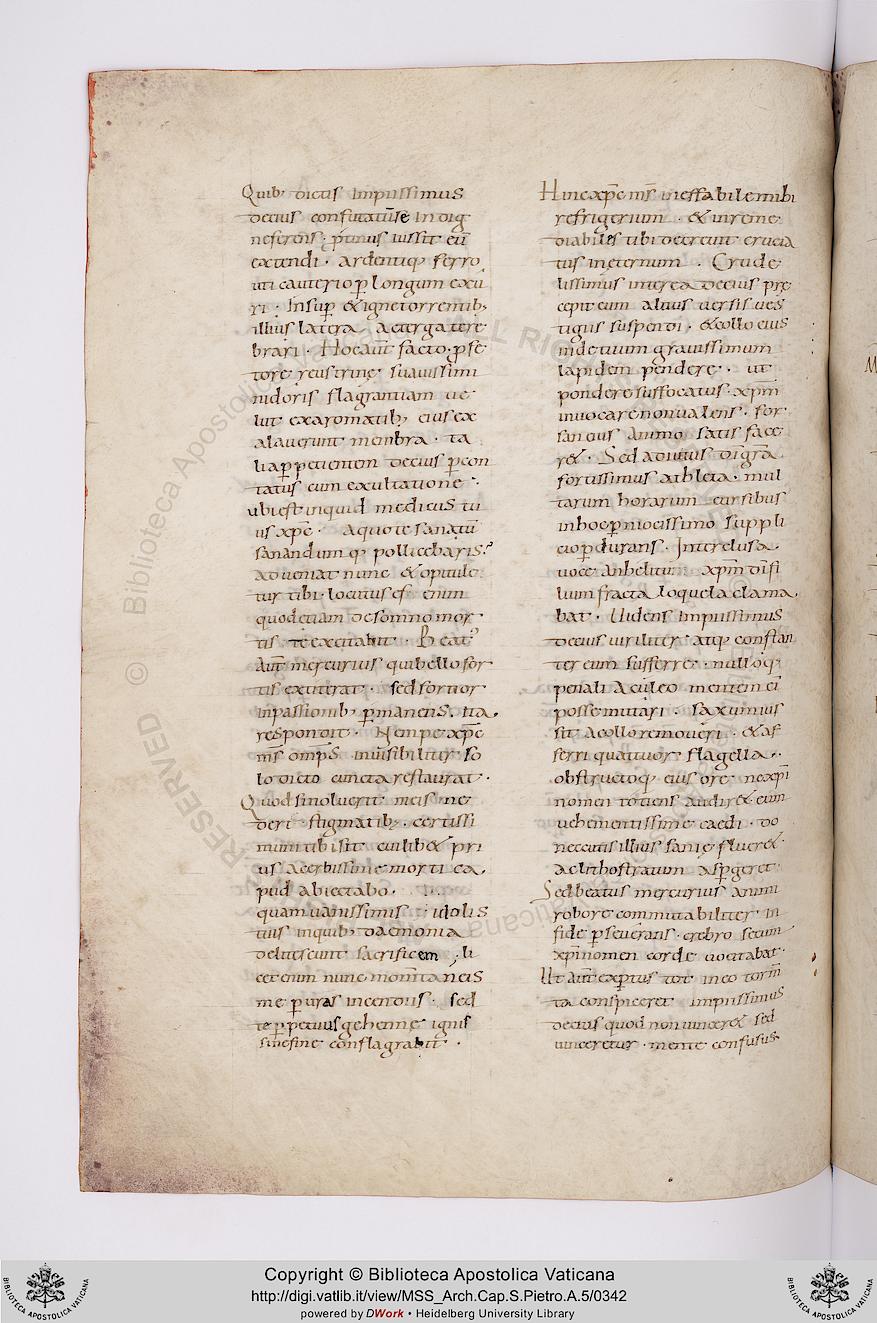 Quib; dictis impiissimus
decius confutatū se indig
neferens; p̄tinus iussit eū
extendi · ardentiq; ferro
uti cauterio ꝑ longum exu
ri · Insuꝑ & igne torrentib;
illius latera a tergo tere
brari · Hoc aut̄ facto · ꝑ se
tore
nidoris flagrantiam ue
lut ex aromatib; eius ex
alauerunt membra · ta
lia ꝑpetientem decius ꝑcon
tatus cum exultatione ·
ubi est inquid medicus tu
us xp̄c · A quo te sanatū
sanandumq; pollicebaris?
adueniat nunc & opitule
tur tibi · locutus es enim
quod etiam de somno mor
tis te excitabit · Beat᾿
aut̄ mercurius qui bello for
tis extiterat · sed fortior
in passionib; ꝑmanens, ita,
respondit · Nempe xp̄c
m̄s omp̄s inuisibiliter so
lo dicto cuncta restaurat ·
Quod si noluerit meis me
deri stigmatib; · certissi
mum tibi sit cuilib& pri
us acerbissime morti ca,
pud abiectabo ·
quam uanissimis idolis
tuis inquib; daemonia
delitescunt sacrificem; li
cet enim nunc momtaneis
me ꝑ uras incendiis · sed
te ꝑpetuus gehenne ignis
sine fine conflagrabit ·
Hinc xp̄c m̄s ineffabile mihi
refrigerium · & inreme
diabiles tibi decreuit crucia
tus in eternum · Crude
lissimus interea decius pre
cepit eum altius uersis ues
tigiis suspendi · & collo eius
inde tuum grauissimum
lapidem pendere · ut
pondere suffocatus · xp̄m
inuocare non ualens · for
san eius animo satis face
r& · Sed adiutus dī gr̄a
fortissimus athleta · mul
tarum horarum cursibus
in hoc ꝑniocissimo suppli
cio ꝑdurans · Interclusa
uoce anhelitu xp̄m dī fi
lium fracta loquela clama,
bat · Uidens impiissimus
decius uiriliter atq; constan
ter eum sufferre · nulloq;
penali aculeo mentem ei
posse mutari · saxum ius
sit a collo remoueri · & af
ferri quattuor flagella ·
obstructoq; eius ore ne xp̄i
nomen totiens audir& · eum
uehementissime caedi · do
nec cutis illius sanię fluer&
ac lithostratum aspgeret ·
Sed beatus mercurius animi
robore commutabiliter in
fide ꝑseuerans · crebro secum
xp̄i nomen corde uocitabat ·
Ut aut̄ exꝑtus tot in eo torm̄
ta conspiceret impiissimus
decius quod non uincer& sed
uinceretur · mente confusus
ALL RIGHTS RESERVED © Biblioteca Apostolica Vaticana
Copyright © Biblioteca Apostolica Vaticana
http://digi.vatlib.it/view/MSS_Arch.Cap.S.Pietro.A.5/0342
powered by DWork • Heidelberg University Library
BIBLIOTECA APOSTOLICA VATICANA
BIBLIOTECA APOSTOLICA VATICANA